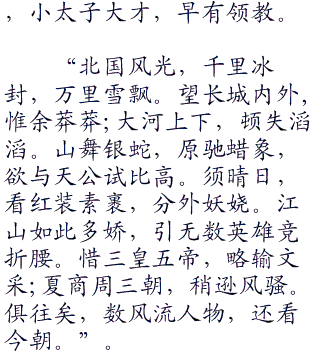 ，小太子大才，早有领教。
“北国风光，千里冰
封，万里雪飘。望长城内外，
惟余莽莽；大河上下，顿失滔
滔。山舞银蛇，原驰蜡象，
欲与天公试比高。须晴日，
看红装素裹，分外妖娆。江
山如此多娇，引无数英雄竞
折腰。惜三皇五帝，略输文
采；夏商周三朝，稍逊风骚。
俱往矣，数风流人物，还看
今朝。”。